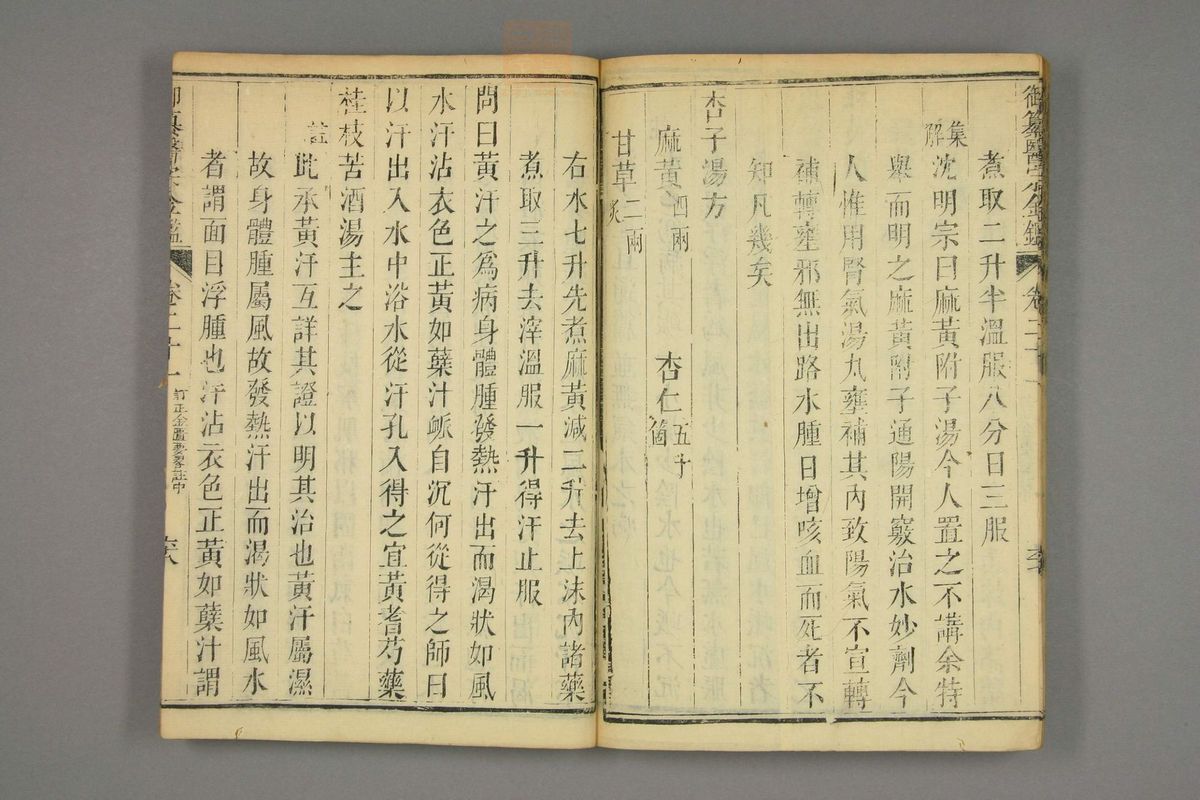 御纂醫宗金鑑 卷二十
煮取二升半溫服八分日三服
集解 沈明宗曰麻黃附子湯今人置之不講余特
舉而明之麻黃附子通陽開竅治水妙劑今
人惟用腎氣湯丸壅補其內致陽氣不宣轉
補轉壅邪無出路水腫日增咳血而死者不
知凡幾矣
杏子湯方
麻黃四兩 杏仁五十箇
甘草二兩炙
右水七升先煮麻黃減二升去上沫內諸藥
煮取三升去滓溫服一升得汗止服
問曰黃汗之為病身體腫發熱汗出而渴狀如風
水汗沾衣色正黃如蘗汁脈自沉何從得之師曰
以汗出入水中浴水從汗孔入得之宜黃耆芍藥
桂枝苦酒湯主之
註 此承黃汗互詳其證以明其治也黃汗屬濕
故身體腫屬風故發熱汗出而渴狀如風水
者謂面目浮腫也汗沾衣色正黃如蘗汁謂
御纂醫宗金鑑 卷二十一 訂正金匱要畧註中